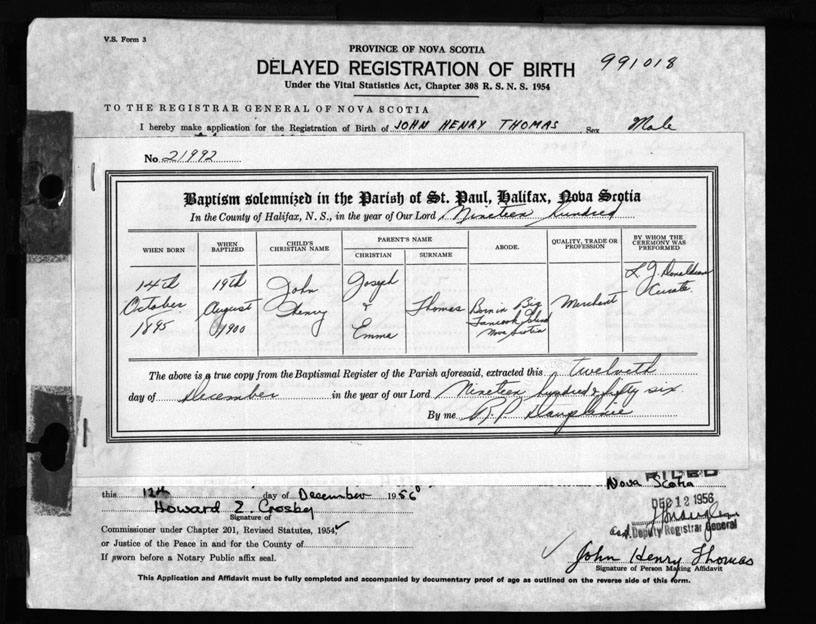 V.S. Form 3
PROVINCE OF NOVA SCOTIA
DELAYED REGISTRATION OF BIRTH 991018
Under the Vital Statistics Act, Chapter 308 R. S. N. S. 1954
TO THE REGISTRAR GENERAL OF NOVA SCOTIA
I hereby make application for the Registration of Birth of JOHN HENRY THOMAS Sex Male
No. 21992
Baptism solemnized in the Parish of St. Paul, Halifax, Nova Scotia
In the County of Halifax, N. S., in the year of Our Lord, Nineteen hundred
WHEN BORN
WHEN BAPTIZED
CHILD'S CHRISTIAN NAME
PARENT'S NAME
CHRISTIAN
SURNAME
ABODE.
QUALITY, TRADE OR PROFESSION
BY WHOM THE CEREMONY WAS PREFORMED
14th October 1895
19th August 1900
John Henry
Joseph & Emma
Thomas
Born in Big Tancook Island Nova Scotia
Merchant
L J. Donaldson Curate.
The above is a true copy from the Baptismal Register of the Parish aforesaid, extracted this twelveth
day of December in the year of our Lord Nineteen hundred & fifty six
By me R. P.
this 12th day of December 1956
Nova Scotia
FILED
DEC 12 1956
Howard E. Crosby
Signature of
Deputy Registrar General
Commissioner under Chapter 201, Revised Statutes, 1954,
or Justice of the Peace in and for the County of
If sworn before a Notary Public affix seal.
John Henry Thomas
Signature of Person Making Affidavit
This Application and Affidavit must be fully completed and accompanied by documentary proof of age as outlined on the reverse side of this form.